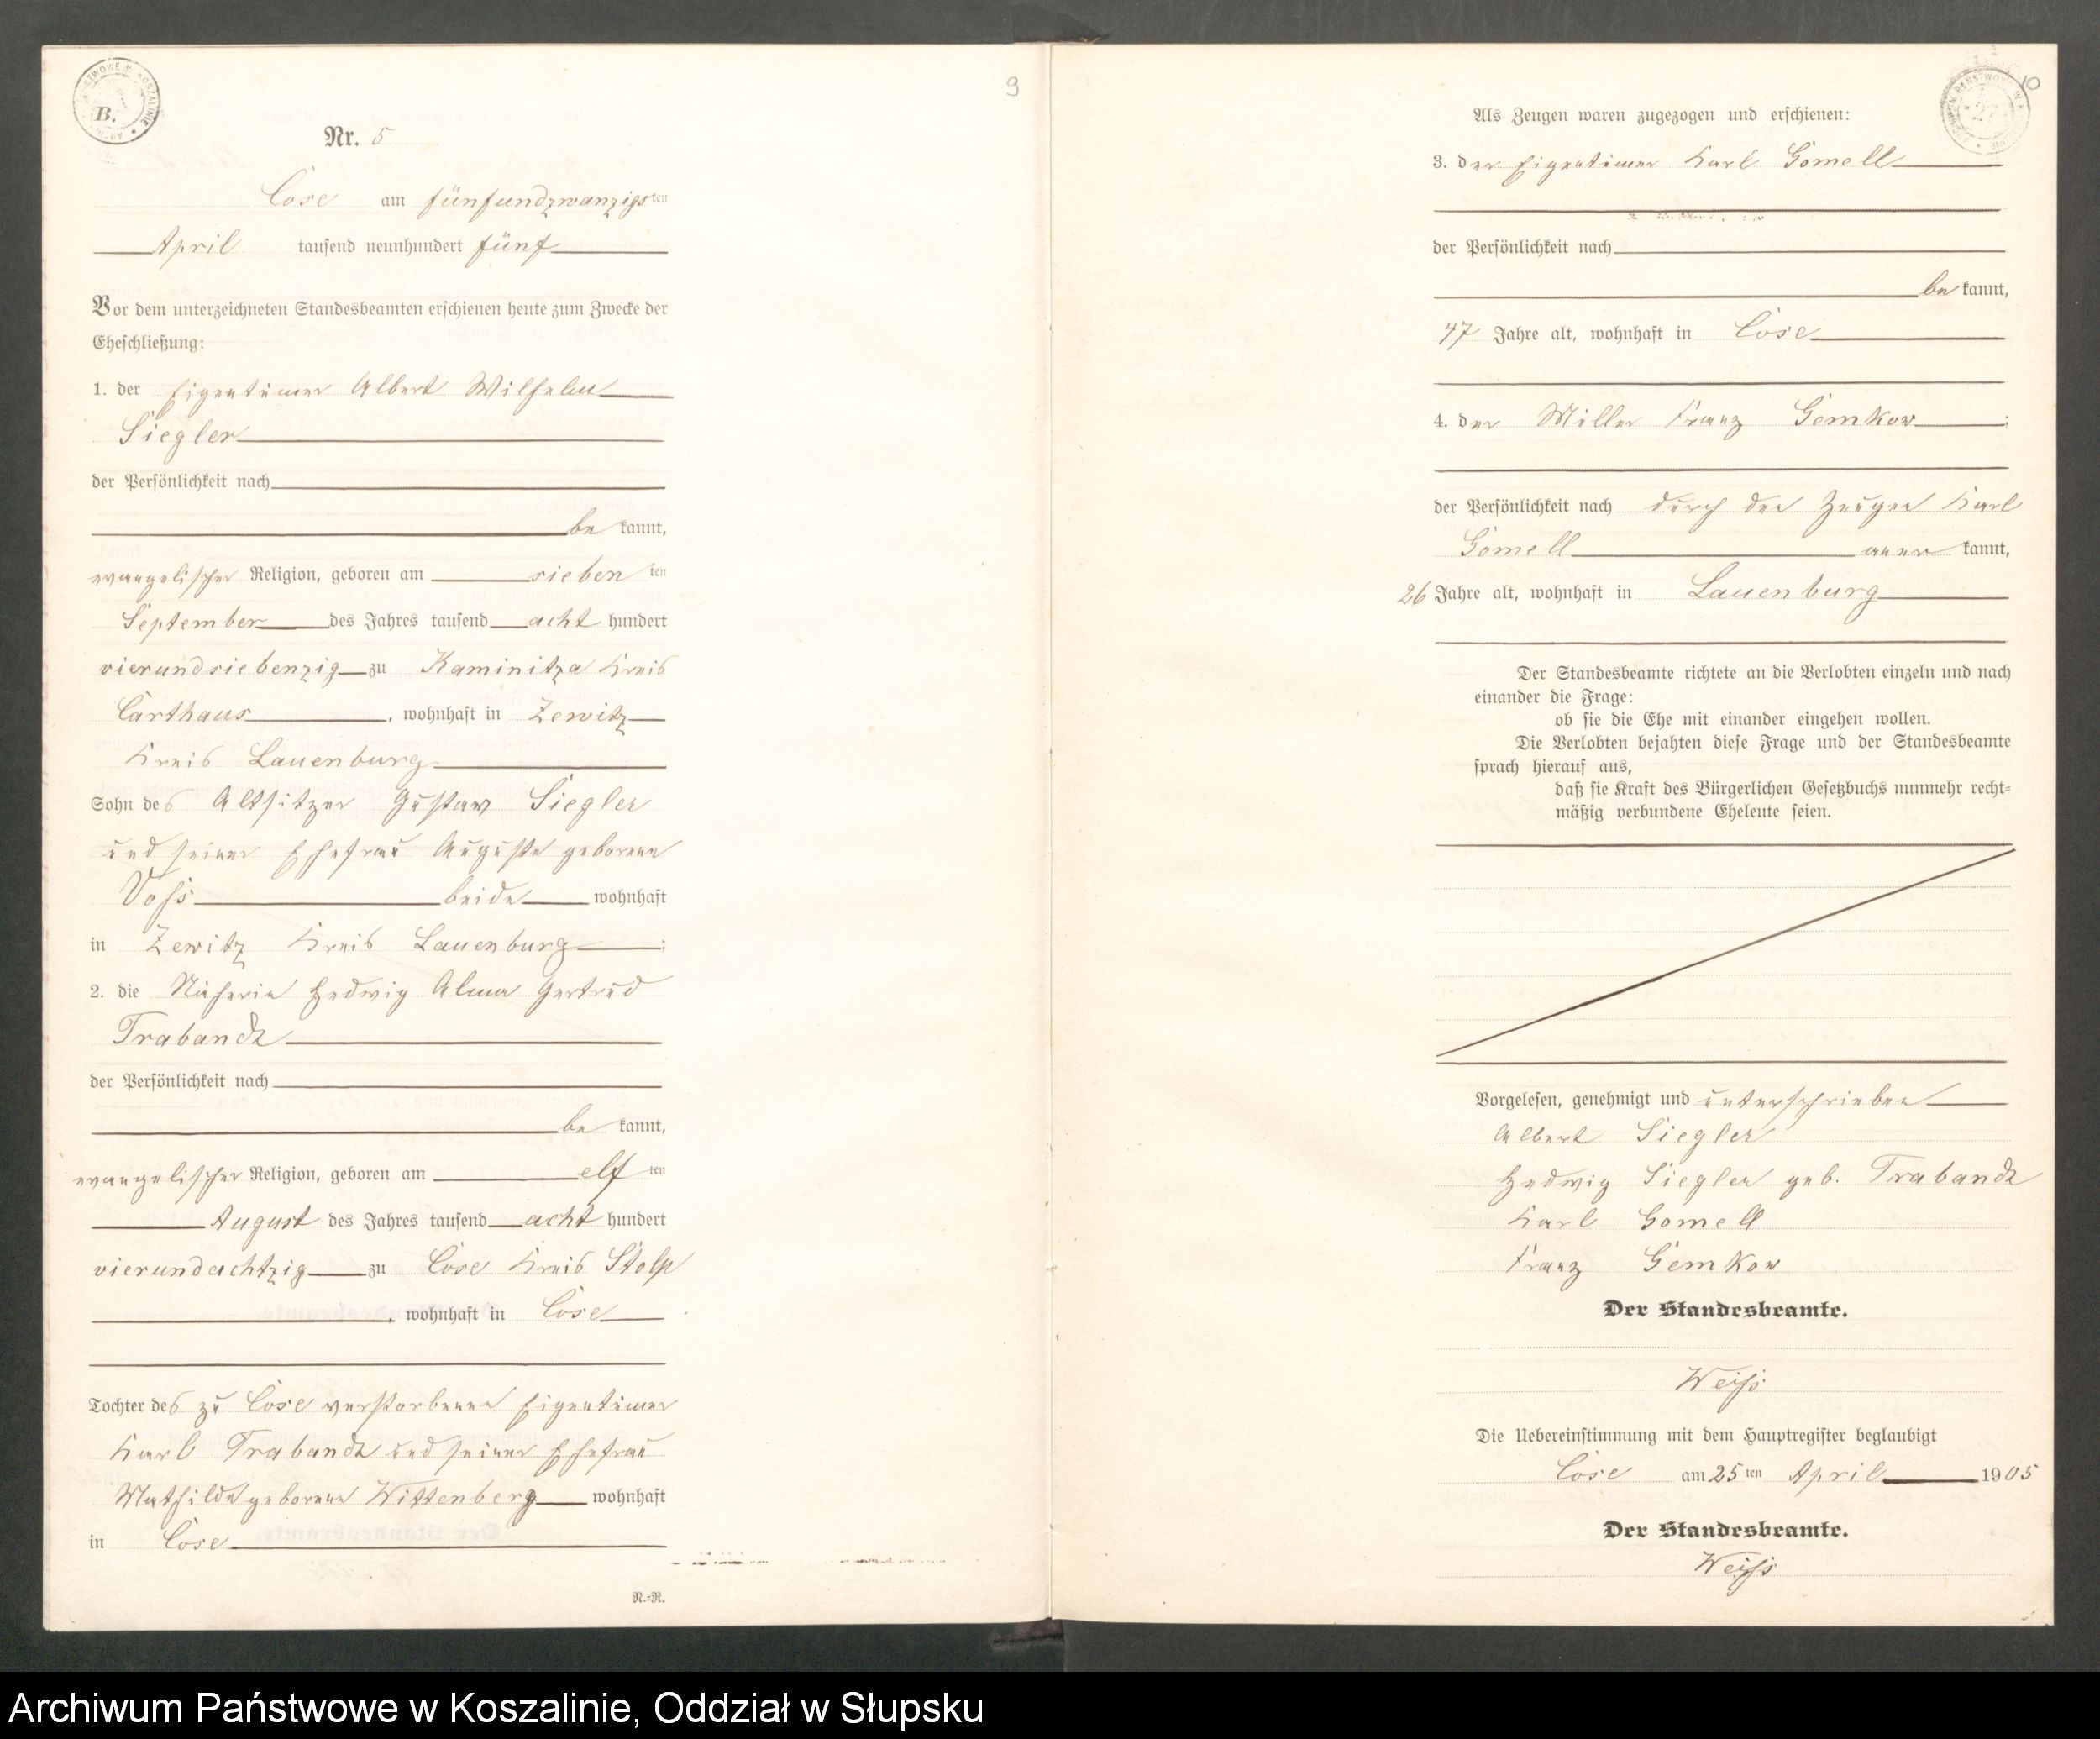 B.
9
Nr. 5
Cose am fünfundzwanzigsten
April tausend neunhundert fünf
Vor dem unterzeichneten Standesbeamten erschienen heute zum Zwecke der
Eheschließung:
1. der Eigentümer Albert Wilhelm
Siegler
der Persönlichkeit nach
be kannt,
evangelischer Religion, geboren am sieben ten
September des Jahres tausend acht hundert
vierundsiebenzig zu Kaminitza Kreis
Carthaus, wohnhaft in Zewitz
Kreis Lauenburg
Sohn des Altsitzer Gustav Siegler
und seiner Ehefrau Auguste geborene
Voß beide wohnhaft
in Zewitz Kreis Lauenburg;
2. die Näherin Hedwig Alma Gertrud
Trabandt
der Persönlichkeit nach
be kannt,
evangelischer Religion, geboren am elf ten
August des Jahres tausend acht hundert
vierundachtzig zu Cose Kreis Stolp
, wohnhaft in Cose
Tochter des zu Cose verstorbenen Eigentümer
Karl Trabandt und seiner Ehefrau
Mathilde geborene Wittenberg wohnhaft
in Cose
N.-R.
10
Als Zeugen waren zugezogen und erschienen:
3. der Eigentümer Karl Gomell
der Persönlichkeit nach
be kannt,
47 Jahre alt, wohnhaft in Cose
4. der Müller Franz Gemkow;
der Persönlichkeit nach durch den Zeugen Karl
Gomell aner kannt,
26 Jahre alt, wohnhaft in Lauenburg
Der Standesbeamte richtete an die Verlobten einzeln und nach
einander die Frage:
ob sie die Ehe mit einander eingehen wollen.
Die Verlobten bejahten diese Frage und der Standesbeamte
sprach hierauf aus,
daß sie Kraft des Bürgerlichen Gesetzbuchs nunmehr recht-
mäßig verbundene Eheleute seien.
Vorgelesen, genehmigt und unterschrieben
Albert Siegler
Hedwig Siegler geb. Trabandt
Karl Gomell
Franz Gemkow
Der Standesbeamte.
Weiß
Die Uebereinstimmung mit dem Hauptregister beglaubigt
Cose am 25ten April 1905
Der Standesbeamte.
Weiß
Archiwum Państwowe w Koszalinie, Oddział w Słupsku